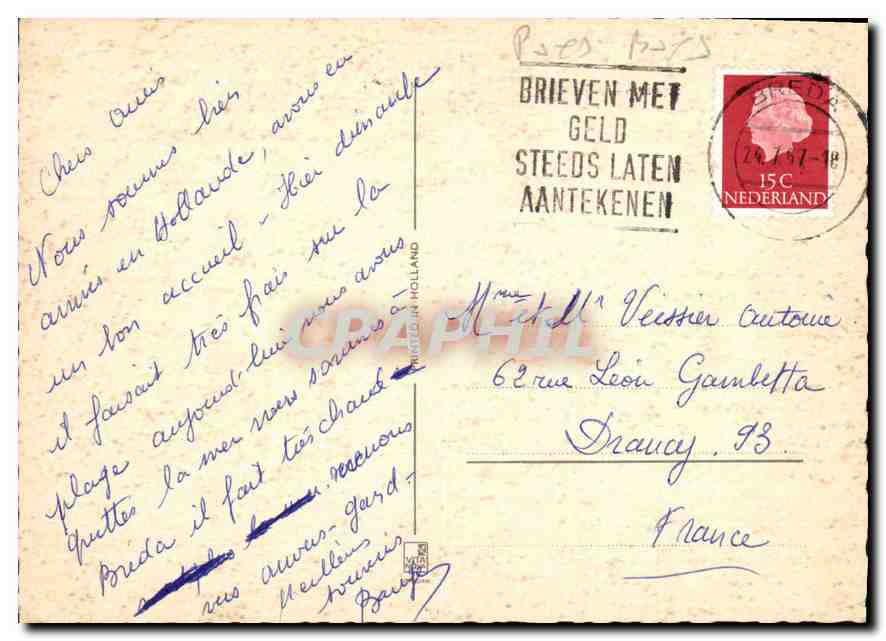 Chers amis
Nous sommes hier
arrivés en Hollande, avons eu
un bon accueil - Hier dimanche
il faisait très frais sur la
plage aujourd'hui nous avons
quittés la mer nous sommes à
Bréda il fait très chaud
revenons
vers anvers - gand -
Meilleurs
souvenirs
PRINTED IN HOLLAND
Pays Bays
BRIEVEN MET
GELD
STEEDS LATEN
AANTEKENEN
BREDA
24.7.67-18
15 C
NEDERLAND
Mme et Mr Veissier Antoine
62 rue Léon Gambetta
Drancy. 93
France
CPAPHIL